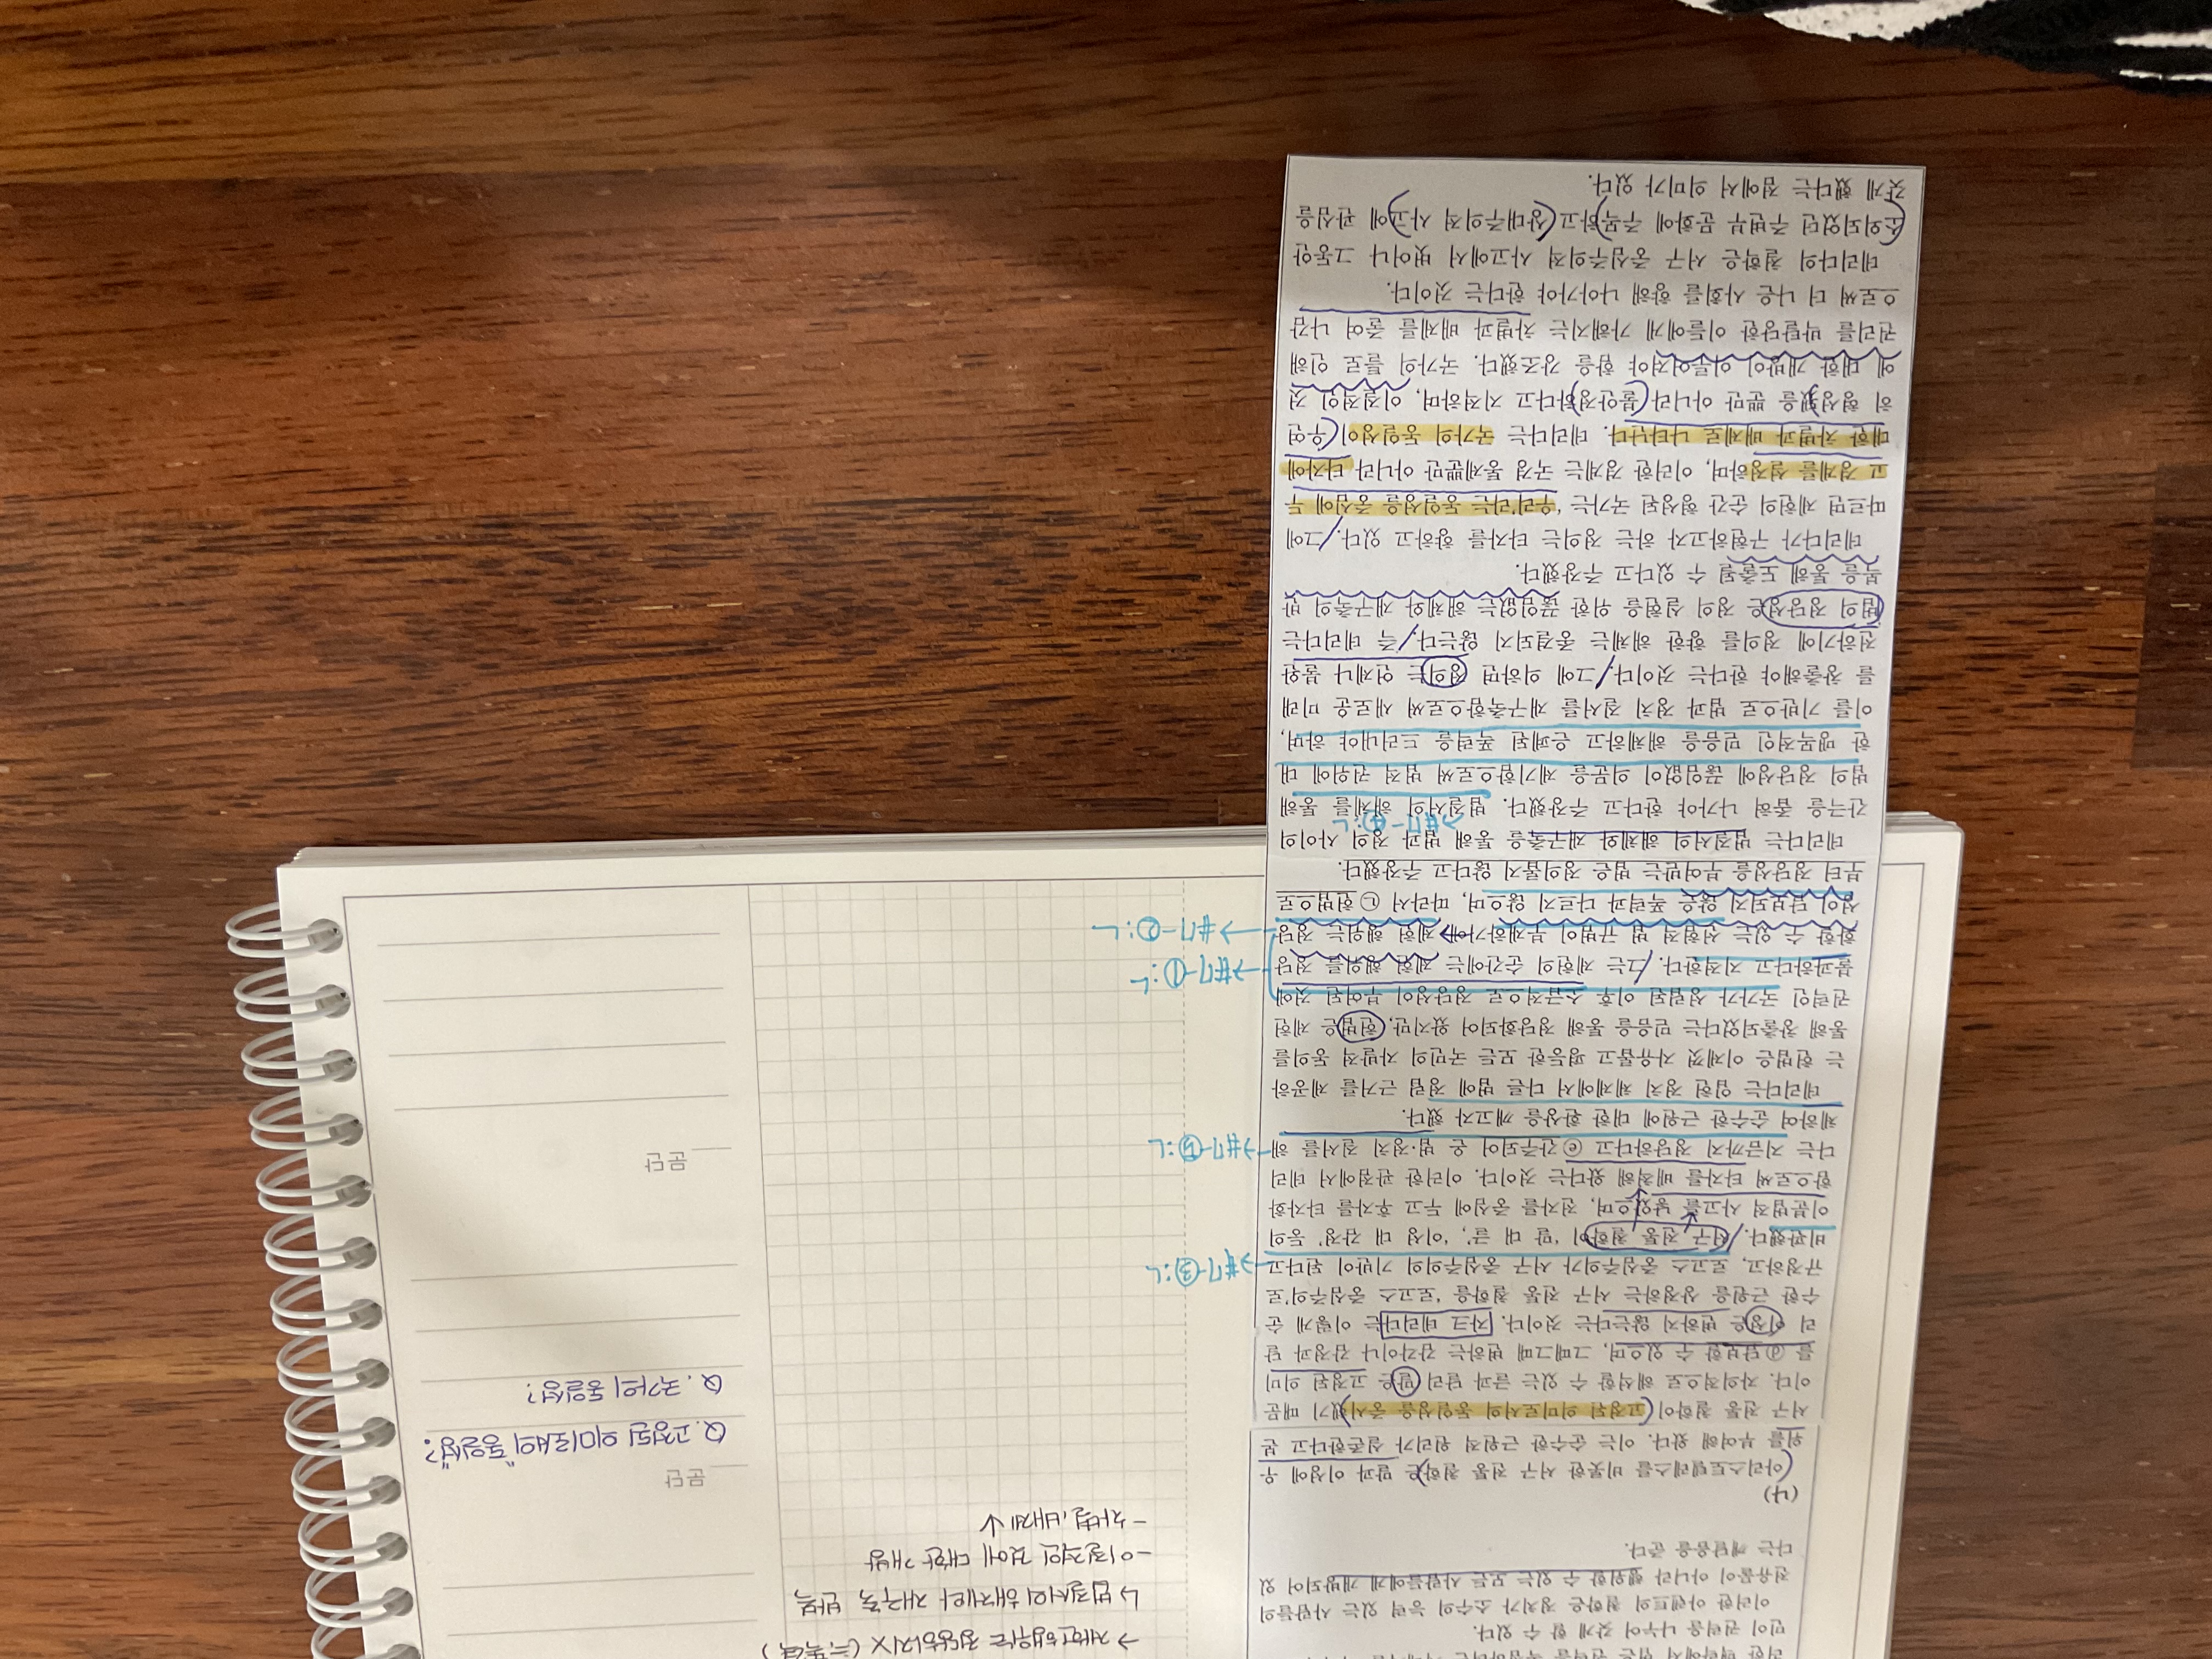 민이 권력을 나누어 갖게 할 수 있다.
이러한 아렌트의 철학은 정치가 소수의 능력 있는 사람들의
전유물이 아니라 행위할 수 있는 모든 사람들에게 개방되어 있
다는 깨달음을 준다.
(나)
아리스토텔레스를 비롯한 서구 전통 철학은 말과 이성에 우
위를 부여해 왔다. 이는 순수한 근원적 원리가 실존한다고 본
서구 전통 철학이 고정된 의미로서의 동일성을 중시했기 때문
이다. 자의적으로 해석할 수 있는 글과 달리 말은 고정된 의미
를 ⓓ담보할 수 있으며, 그때그때 변하는 감각이나 감정과 달
리 이성은 변하지 않는다는 것이다. 자크 데리다는 이렇게 순
수한 근원을 상정하는 서구 전통 철학을 '로고스 중심주의'로
규정하고, 로고스 중심주의가 서구 중심주의의 기반이 된다고
비판했다. 서구 전통 철학이 '말 대 글', '이성 대 감정' 등의
이분법적 사고를 낳았으며, 전자를 중심에 두고 후자를 타자화
함으로써 타자를 배척해 왔다는 것이다. 이러한 관점에서 데리
다는 지금까지 정당하다고 ⓔ간주되어 온 법·정치 질서를 해
체하여 순수한 근원에 대한 환상을 깨고자 했다.
데리다는 입헌 정치 체제에서 다른 법에 정립 근거를 제공하
는 헌법은 이제껏 자유롭고 평등한 모든 국민의 자발적 동의를
통해 창출되었다는 믿음을 통해 정당화되어 왔지만, 헌법은 제헌
권력인 국가가 성립된 이후 소급적으로 정당성이 부여된 것에
불과하다고 지적한다. 그는 제헌의 순간에는 제헌 행위를 정당
화할 수 있는 선험적 법 규범이 부재하기에 제헌 행위는 정당
성이 담보되지 않은 폭력과 다르지 않으며, 따라서 ㉡헌법으로
부터 정당성을 부여받는 법은 정의롭지 않다고 주장했다.
데리다는 법질서의 해체와 재구축을 통해 법과 정의 사이의
간극을 좁혀 나가야 한다고 주장했다. 법질서의 해체를 통해
법의 정당성에 끊임없이 의문을 제기함으로써 법적 권위에 대
한 맹목적인 믿음을 해체하고 은폐된 폭력을 드러내야 하며,
이를 기반으로 법과 정치 질서를 재구축함으로써 새로운 미래
를 창출해야 한다는 것이다. 그에 의하면 정의는 언제나 불완
전하기에 정의를 향한 해체는 종결되지 않는다. 즉 데리다는
법의 정당성은 정의 실현을 위한 끊임없는 해체와 재구축의 반
복을 통해 도출될 수 있다고 주장했다.
데리다가 구현하고자 하는 정의는 타자를 향하고 있다. 그에
따르면 제헌의 순간 형성된 국가는 '우리'라는 동일성을 중심에 두
고 경계를 설정하며, 이러한 경계는 국경 통제뿐만 아니라 타자에
대한 차별과 배제로 나타난다. 데리다는 국가의 동일성이 우연
히 형성됐을 뿐만 아니라 불안정하다고 지적하며, 이질적인 것
에 대한 개방이 이루어져야 함을 강조했다. 국가의 틀로 인해
권리를 박탈당한 이들에게 가해지는 차별과 배제를 줄여 나감
으로써 더 나은 사회를 향해 나아가야 한다는 것이다.
데리다의 철학은 서구 중심주의적 사고에서 벗어나 그동안
소외되었던 주변부 문화에 주목하고 상대주의적 사고에 관심을
갖게 했다는 점에서 의미가 있다.
→#7-③:ㄴ
→#7-⑤:ㄴ
→#7-①:ㄴ
→#7-②:ㄴ
>#7-④:ㄴ
→ 제헌행위는 정당하지X (=폭력)
↳ 법질서의 해체와 재구축 반복
- 이질적인 것에 대한 개방
- 차별, 배제↓
문단
Q. 고정된 의미로서의 "동일성"?
Q. 국가의 동일성?
문단